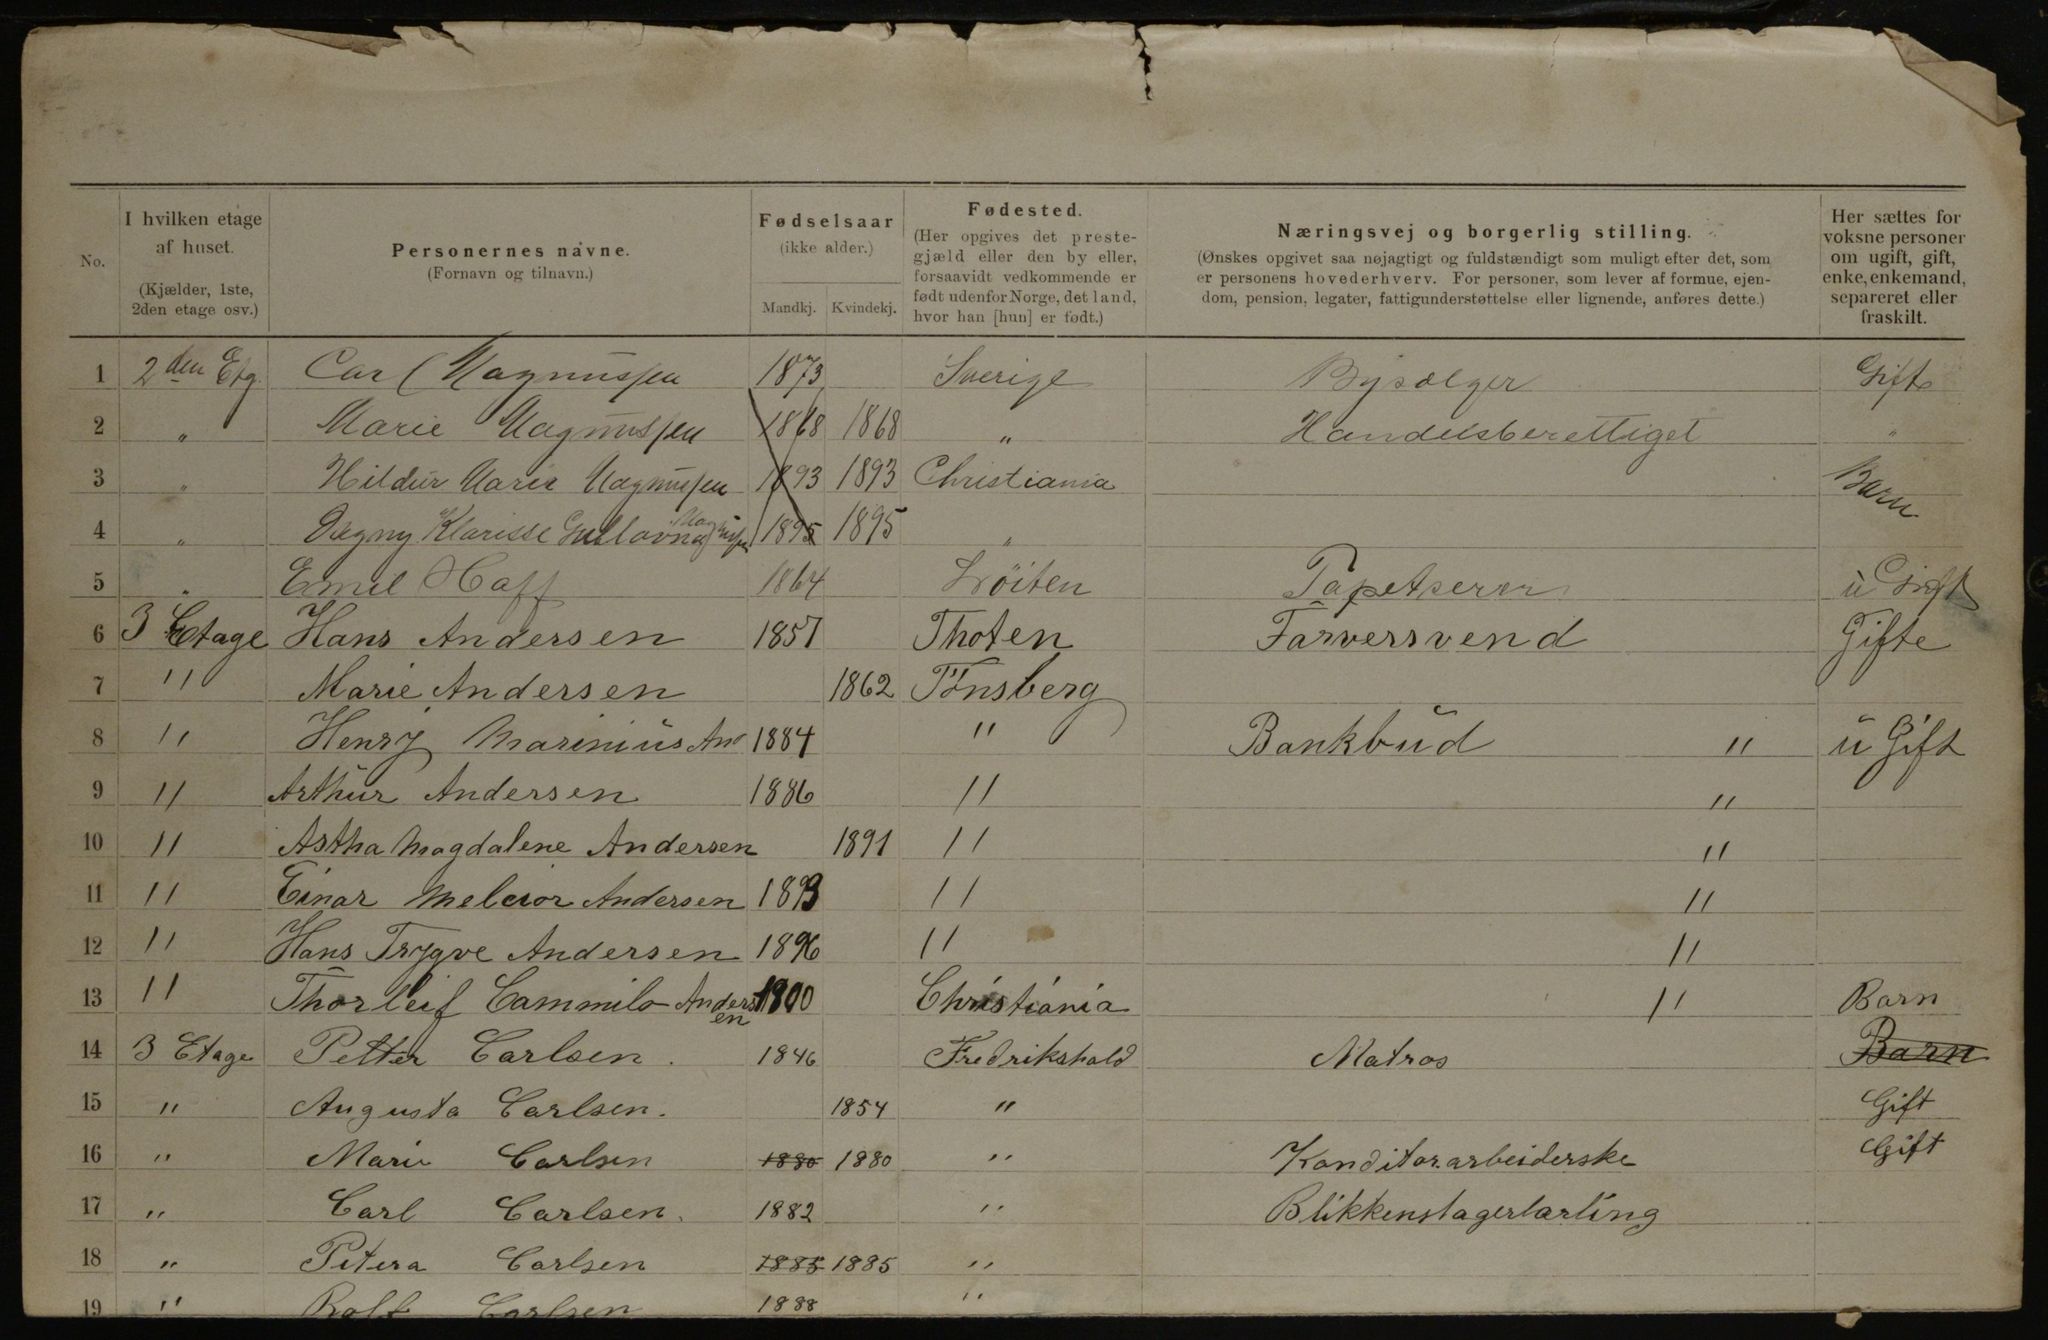 No.
I hvilken etage
af huset.
(Kjælder, 1ste,
2den etage osv.)
Personernes navne.
(Fornavn og tilnavn.)
Fødselsaar
(ikke alder.)
Mandkj. Kvindekj.
Fødested.
(Her opgives det preste-
gjæld eller den by eller,
forsaavidt vedkommende er
født udenfor Norge, det land,
hvor han [hun] er født.)
Næringsvej og borgerlig stilling.
(Ønskes opgivet saa nøjagtigt og fuldstændigt som muligt efter det, som
er personens hovederhverv. For personer, som lever af formue, ejen-
dom, pension, legater, fattigunderstøttelse eller lignende, anføres dette.)
Her sættes for
voksne personer
om ugift, gift,
enke, enkemand,
separeret eller
fraskilt.
1 2den Etg. Carl Magnussen 1873 Sverige Bysælger Gift
2 " Marie Magnussen 1868 1868 " Handelsberettiget "
3 " Hildur Marie Magnussen 1893 1893 Christiania Barn
4 " Dagny Klarisse Gullovna Magnussen 1895 1895 "
5 " Emil Haff 1864 Løiten Tapetserer u Gift
6 3 Etage Hans Andersen 1857 Thoten Farversvend Gifte
7 " Marie Andersen 1862 Tønsberg
8 " Henry Marinius An 1884 " Bankbud " u Gift
9 " Arthur Andersen 1886 " "
10 " Astha Magdalene Andersen 1891 " "
11 " Einar Melcior Andersen 1893 " "
12 " Hans Trygve Andersen 1896 " "
13 " Thorleif Cammilo Andersen 1900 Christiania " Barn
14 3 Etage Petter Carlsen. 1846 Fredrikshald Matros Barn
15 " Augusta Carlsen. 1854 " Gift
16 " Marie Carlsen 1880 1880 " Konditorarbeiderske Gift
17 " Carl Carlsen. 1882 " Blikkenslagerlærling
18 " Petera Carlsen 1885 1885 "
19 " Rolf Carlsen 1888 "